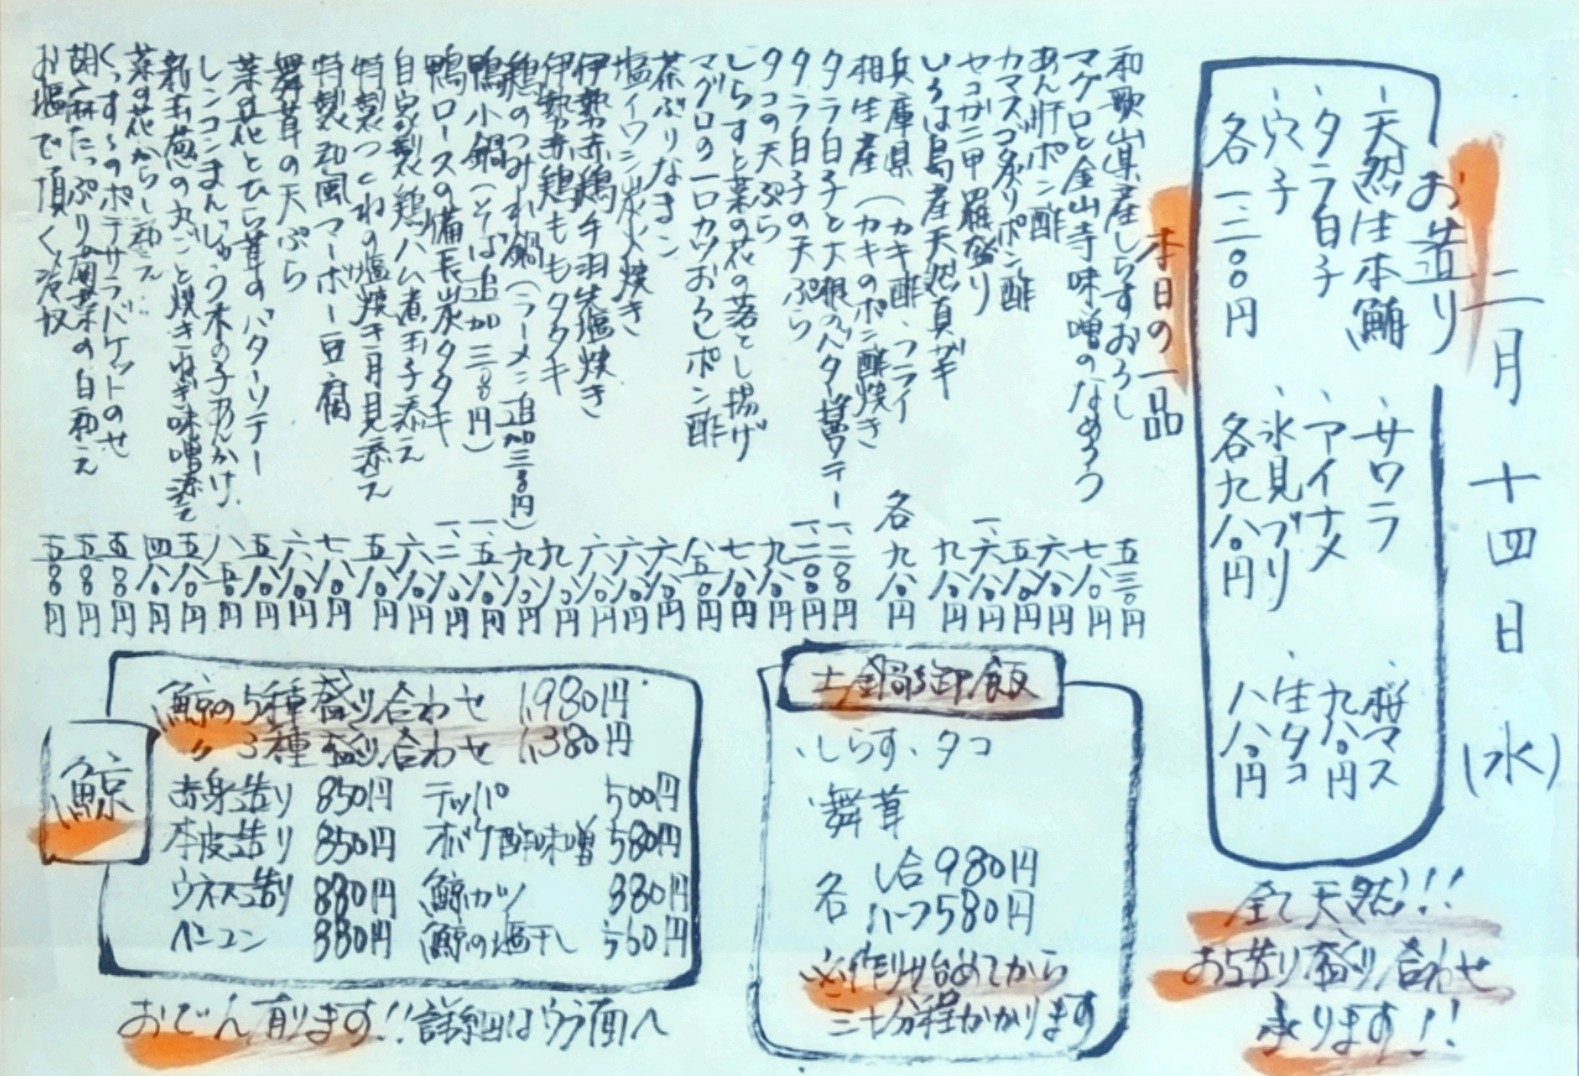 二月十四日(水)
お造り
、天然生本鮪
、タラ白子
、穴子
各一、二〇〇円
、サワラ
、アイナメ
、氷見ブリ
各九八〇円
、桜マス
九八〇円
、生タコ
八八〇円
全て天然!!
お造り盛り合わせ
承ります!!
本日の一品
和歌山県産しらすおろし 五三〇円
マグロと金山寺味噌のなめろう 七八〇円
あん肝ポン酢 六八〇円
カマスゴ炙りポン酢 五八〇円
セコガニ甲羅盛り 一、六八〇円
いろは島産天然真ガキ 九八〇円
兵庫県 (カキ酢、フライ
相生産 (カキのポン酢焼き
各九八〇円
タラ白子と大根のバター醤ソテー 一、二八〇円
タラ白子の天ぷら 一、二〇〇円
タコの天ぷら 九八〇円
しらすと菜の花の落とし揚げ 七八〇円
マグロの一口カツおろしポン酢 八五〇円
茶ぶりなまこ 六八〇円
塩イワシ炭火焼き 六八〇円
伊勢赤鶏手羽先塩焼き 六八〇円
伊勢赤鶏ももタタキ 九八〇円
鶏のつみれ鍋(ラーメン追加三〇〇円) 九八〇円
鴨小鍋(そば追加三〇〇円) 一、五八〇円
鴨ロースの備長炭タタキ 一、二八〇円
自家製鶏ハム煮玉子添え 六八〇円
特製つくねの塩焼き月見添え 五八〇円
特製和風マーボー豆腐 七八〇円
舞茸の天ぷら 六八〇円
菜の花とひら茸のバターソテー 五八〇円
レンコンまんじゅう木の子あんかけ 八五〇円
新玉葱の丸ごと焼きねぎ味噌添え 五八〇円
菜の花からし和え 四八〇円
くっすぅのポテサラバケットのせ 五八〇円
胡麻たっぷり菊菜の白和え 五八〇円
お塩で頂く冷奴 五八〇円
土鍋御飯
、しらす、タコ
、舞茸
各 一合980円
ハーフ580円
※作り始めてから
三十分程かかります
鯨
鯨の5種盛り合わせ 1,980円
〃 3種盛り合わせ 1,380円
赤身造り 850円 テッパ 500円
本皮造り 850円 オバケ酢味噌 580円
ウネス造り 880円 鯨カツ 880円
ベーコン 880円 鯨の塩干し 560円
おでん有ります!!詳細はウラ面へ